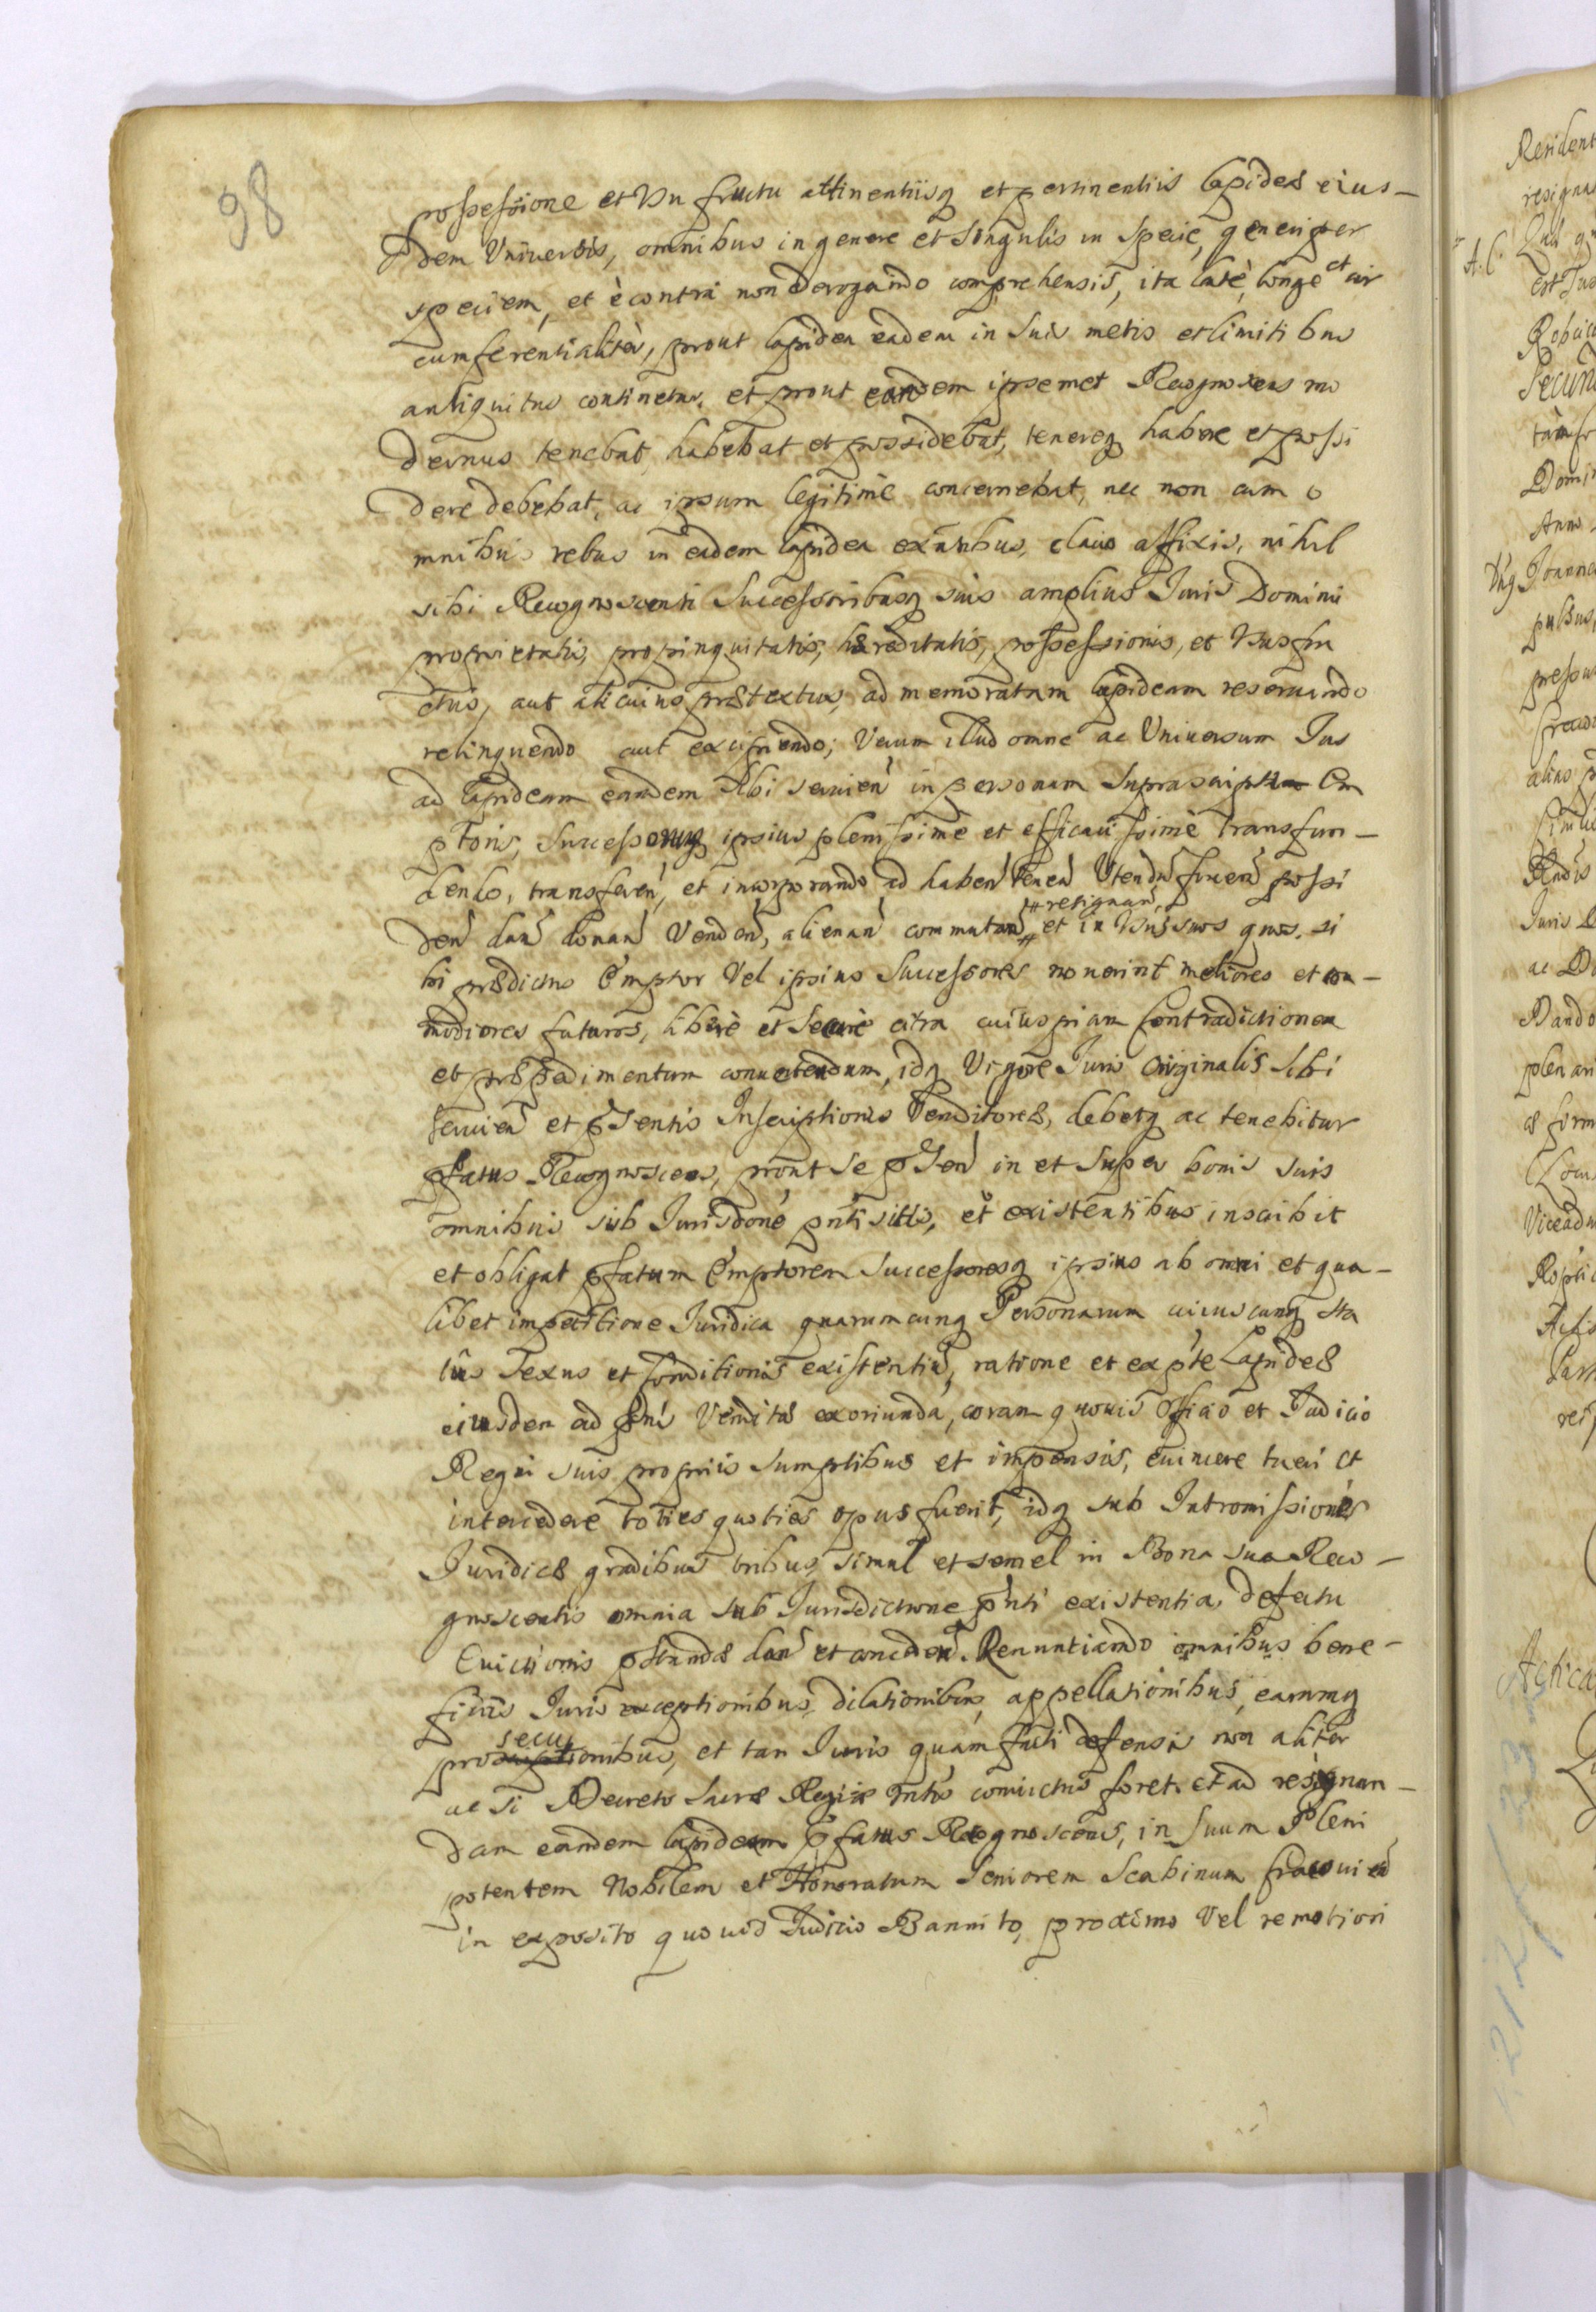 98
possessione et Usu fructu attinentiisq et pertinentiis lapideæ eius-
dem Universis, omnibus in genere et singulis in specie, generi per
speciem, et è contrà non derogando comprehensis, ita latè, longè et cir
cumferentialitèr, prout lapidea eadem in suis metis et limitibus
antiquitus continetur, et prout eandem ipsemet Recognoscens mo
dernus tenebat, habebat et possidebat, tenereq habere et possi
dere debebat, ac ipsum legitimè concernebat, nec non cum o
mnibus rebus in eadem lapidea exñtibus, clavo affixis, nihil
sibi Recognoscenti Successoribusq suis amplius Juris Dominii
proprietatis, propinquitatis, hæreditatis, possessionis, et Ususfru
ctus, aut alicuius prætextus, ad memoratam lapideam reservando
relinquendo aut excipiendo; Verum illud omne ac Universum Jus
ad lapideam eandem sibi servien in personam suprascripti Em
ptoris, Successorumq ipsius plenissimè et efficacissimè transfun-
dendo, transferen, et incorporando, ad haben tenen Utendu fruen possi
den dan donan Venden, alienan commutan # et in Usus suos quos si
# resignan,
bi prædictus Emptor Vel ipsius Successores noverint meliores et com-
modiores futuros, liberè et securè citra cuiuspiam Contradictionem
et præpedimentum convertendum, idq Vigore Juris Originalis sibi
servien et pntis Inscriptionis Venditoreæ, debetq ac tenebitur
pfatus Recognoscens, prout se pnten in et super bonis suis
omnibus sub Jurisdone pnti sitis, et existentibus inscribit
et obligat pfatum Emptorem Successoresq ipsius ab omni et qua-
libet impetitione Juridica quarumcunq Personarum cuiuscunq sta
tus sexus et Conditionis existentiu, ratione et ex pte Lapideæ
eiusdem ad pns Venditæ exoriunda, coram quovis Officio et Judicio
Regni suis propriis sumptibus et impensis, evincere tueri et
intercedere toties quoties opus fuerit, idq sub Intromissionis
Juridicæ gradibus tribus, simul et semel in Bona sua Reco-
gnoscentis omnia sub Jurisdictione pnti existentia, defectu
Evictionis pstandæ dan et conceden. Renuntiando omnibus bene-
ficiis Juris exceptionibus, dilationibus, appellationibus, earumq
prosecutionibus, et tam Juris quàm facti defensis non aliter
ac si Decreto Sacræ Regiæ Mttis convictus foret. Et ad resignan-
dam eandem lapideam pfatus Recognoscens, in suum Pleni
potentem Nobilem et Honoratum Seniorem Scabinum Cracovien
in exposito quovis Judicio Bannito, proximo Vel remotiori